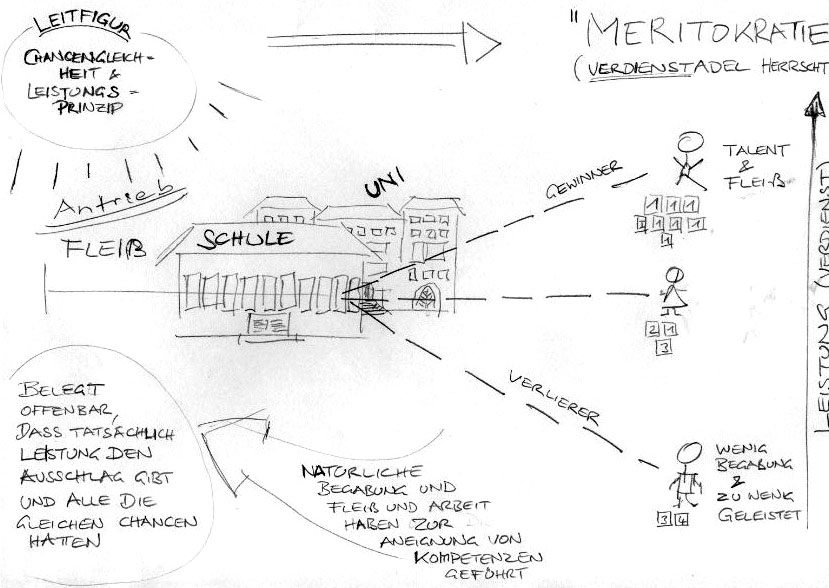 LEITFIGUR
CHANCENGLEICH=
HEIT &
LEISTUNGS=
PRINZIP
"MERITOKRATIE
(VERDIENSTADEL HERRSCHT
Antrieb
FLEIß
SCHULE
UNI
GEWINNER
TALENT
&
FLEIß
1 1 1
1 1 1 1
1
2 1
3
VERLIERER
WENIG
BEGABUNG
&
ZU WENIG
GELEISTET
3 4
LEISTUNG (VERDIENST)
BELEGT
OFFENBAR,
DASS TATSÄCHLICH
LEISTUNG DEN
AUSSCHLAG GIBT
UND ALLE DIE
GLEICHEN CHANCEN
HATTEN
NATÜRLICHE
BEGABUNG UND
FLEIß UND ARBEIT
HABEN ZUR
ANEIGNUNG VON
KOMPETENZEN
GEFÜHRT